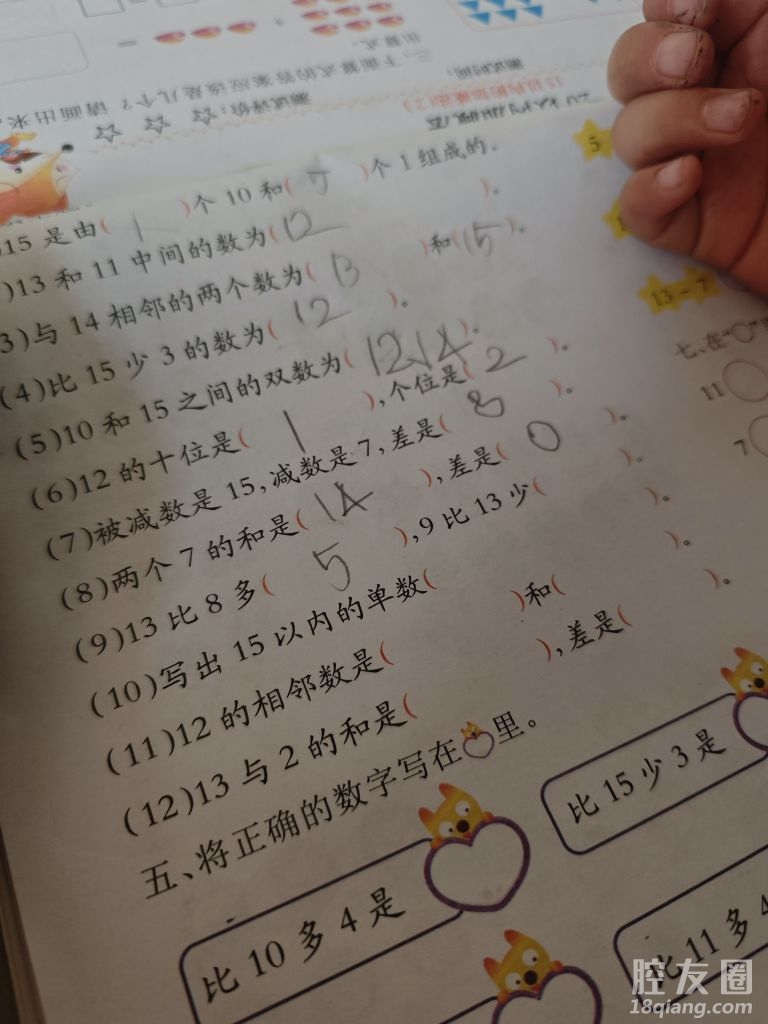 二、下面算式的答案应该是几个？请画出来，
出算式。
测试评价：☆ ☆ ☆
测试时间：
)15 是由( 1 )个 10 和( 5 )个 1 组成的。
)13 和 11 中间的数为( 12 )。
3)与 14 相邻的两个数为( 13 )和( 15 )。
(4)比 15 少 3 的数为( 12 )。
(5)10 和 15 之间的双数为( 12.14 )。
(6)12 的十位是( 1 ),个位是( 2 )。
(7)被减数是 15,减数是 7,差是( 8 )。
(8)两个 7 的和是( 14 ),差是( 0 )。
(9)13 比 8 多( 5 ),9 比 13 少( )。
(10)写出 15 以内的单数( )。
(11)12 的相邻数是( )和( )。
(12)13 与 2 的和是( ),差是( )。
五、将正确的数字写在 里。
比 15 少 3 是
比 10 多 4 是
比 11 多 4
5
13－7
七、在“○”里
11
7
腔友圈
18qiang.com